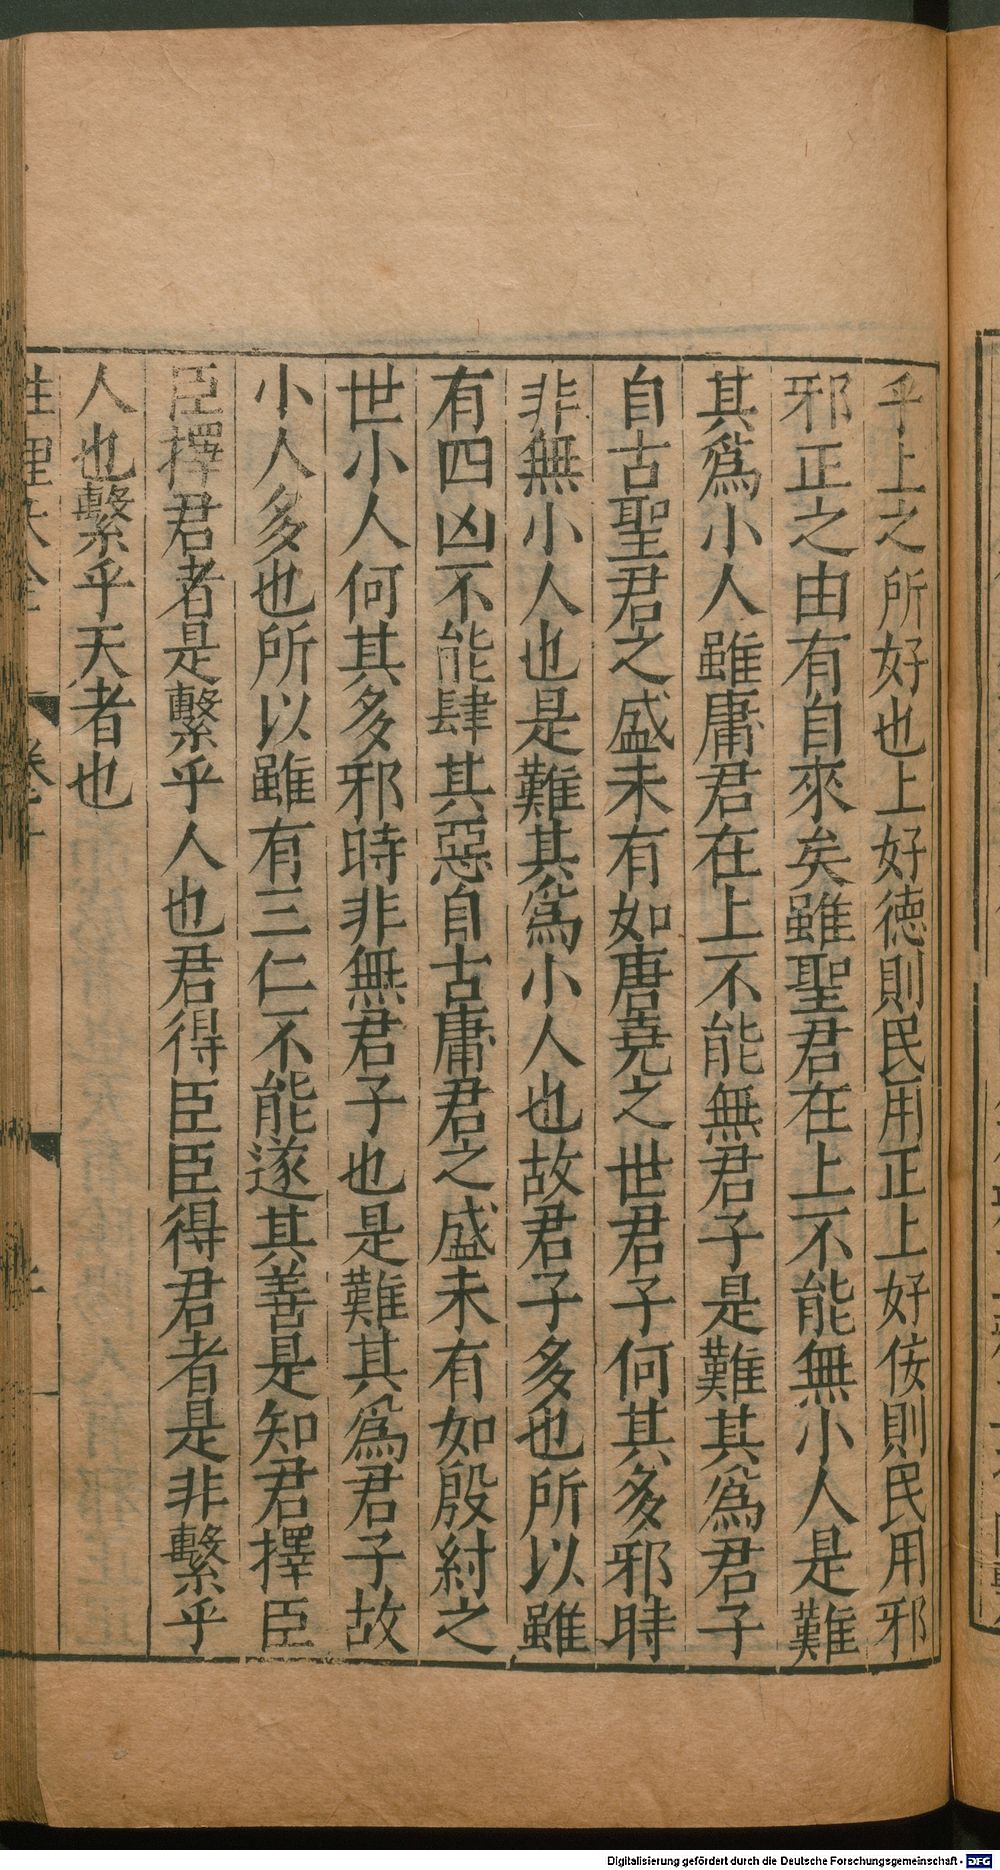 乎上之所好也上好德則民用正上好佞則民用邪
邪正之由有自來矣雖聖君在上不能無小人是難
其爲小人雖庸君在上不能無君子是難其爲君子
自古聖君之盛未有如唐堯之世君子何其多邪時
非無小人也是難其爲小人也故君子多也所以雖
有四凶不能肆其惡自古庸君之盛未有如殷紂之
世小人何其多邪時非無君子也是難其爲君子故
小人多也所以雖有三仁不能遂其善是知君擇臣
臣擇君者是繫乎人也君得臣臣得君者是非繫乎
人也繫乎天者也
性理大全
Digitalisierung gefördert durch die Deutsche Forschungsgemeinschaft - DFG